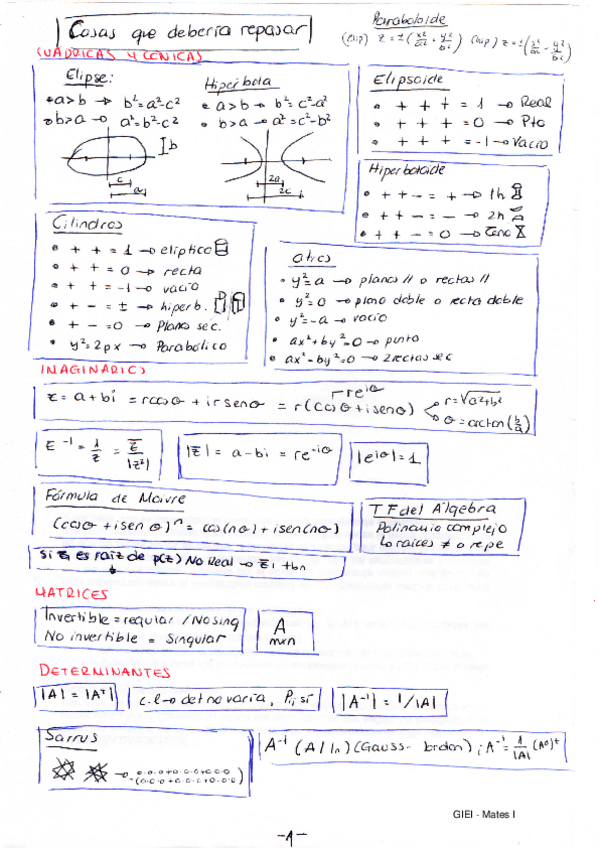 Cosas que debería repasar
Paraboloide
(elip) z = ± (x²/a² + y²/b²) (hip) z = ± (x²/a² - y²/b²)
CUÁDRICAS Y CÓNICAS
Elipse:
• a>b → b²=a²-c²
• b>a → a²=b²-c²
b
c
a
Hipérbola
• a>b → b²=c²-a²
• b>a → a²=c²-b²
2a
2c
Elipsoide
• + + + = 1 → Real
• + + + = 0 → Pto
• + + + = -1 → Vacio
Hiperboloide
• + + - = + → 1h
• + + - = - → 2h
• + + - = 0 → Cono
Cilindros
• + + = 1 → elíptico
• + + = 0 → recta
• + + = -1 → vacio
• + - = ± → hiperb.
• + - = 0 → Planos sec.
• y² = 2px → Parabólico
otros
• y²=a → planos // o rectas //
• y²=0 → plano doble o recta doble
• y²=-a → vacio
• ax²+by²=0 → punto
• ax²-by²=0 → 2 rectas sec
IMAGINARIOS
re^iθ
z = a+bi = rcosθ + irsenθ = r(cosθ + isenθ)
r=√a²+b²
θ=arctan(b/a)
z⁻¹ = 1/z = z̄/|z²|
|z̄| = a-bi = re^-iθ
|e^iθ| = 1
Fórmula de Moivre
(cosθ + isenθ)ⁿ = cos(nθ) + isen(nθ)
TF del Álgebra
Polinomio complejo
raices ≠ o repe
Si z₁ es raiz de p(z) No Real → z̄₁ tbn
MATRICES
Invertible = regular / No sing
No invertible = Singular
A
mxn
DETERMINANTES
|A| = |Aᵗ|
c.l → det no varia, Pij sí
|A⁻¹| = 1/|A|
Sarrus
A⁻¹ (A | In) (Gauss-Jordan) ; A⁻¹ = 1/|A| (Aᵈ)ᵗ
GIEI - Mates I
-1-